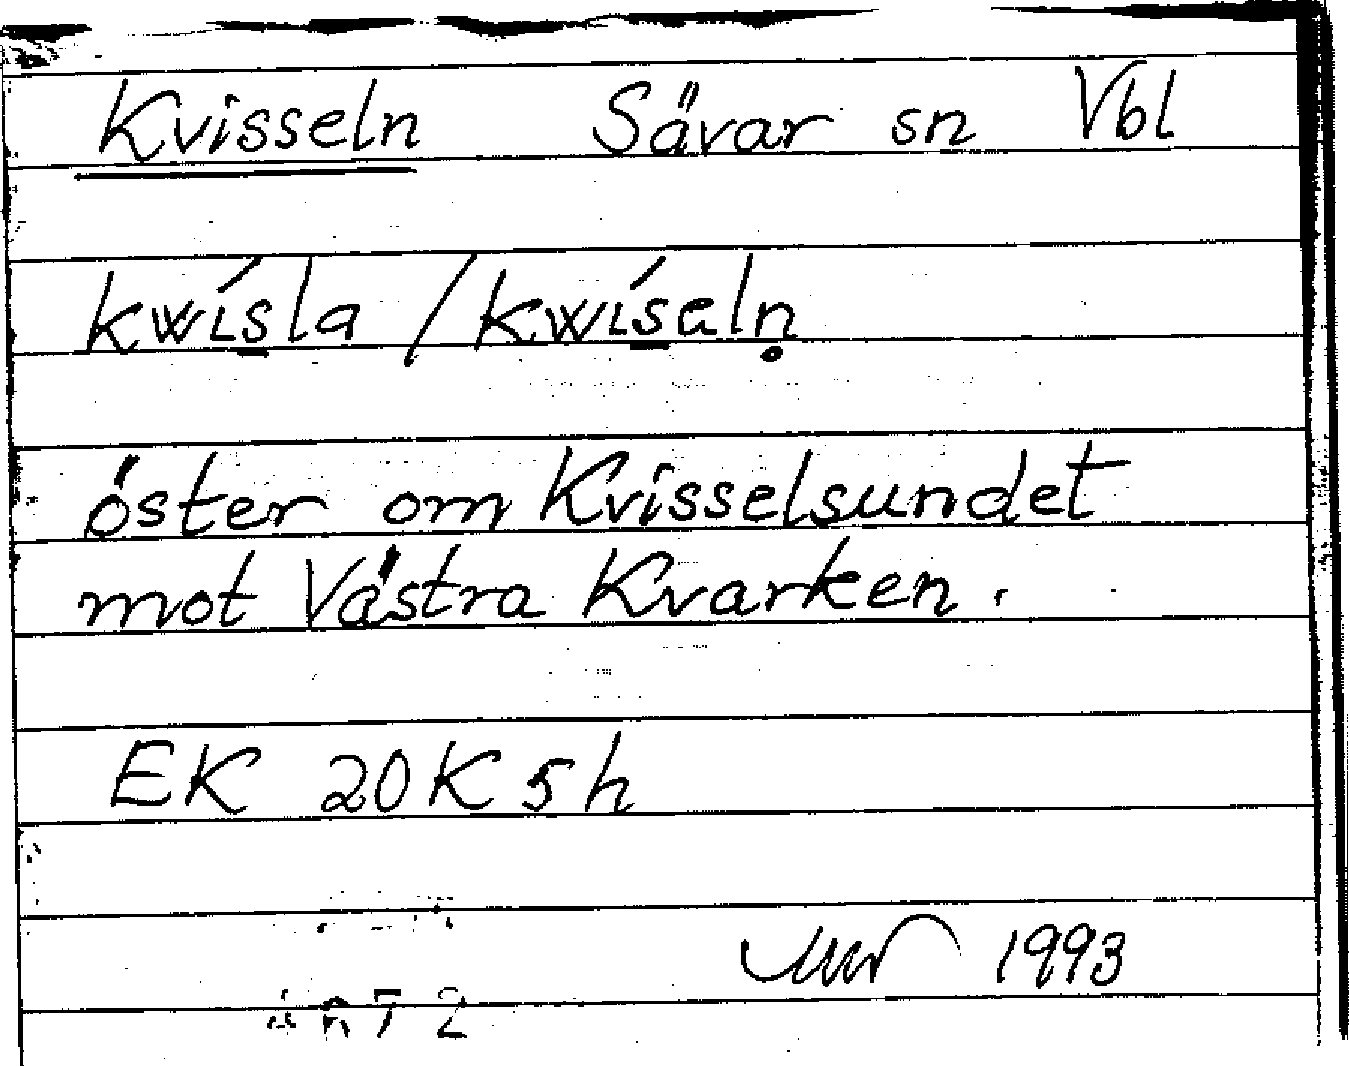 Kvisseln Sävar sn Vbl
kwísla / kwíseln̥
öster om Kvisselsundet
mot Västra Kvarken.
EK 20K 5h
1993